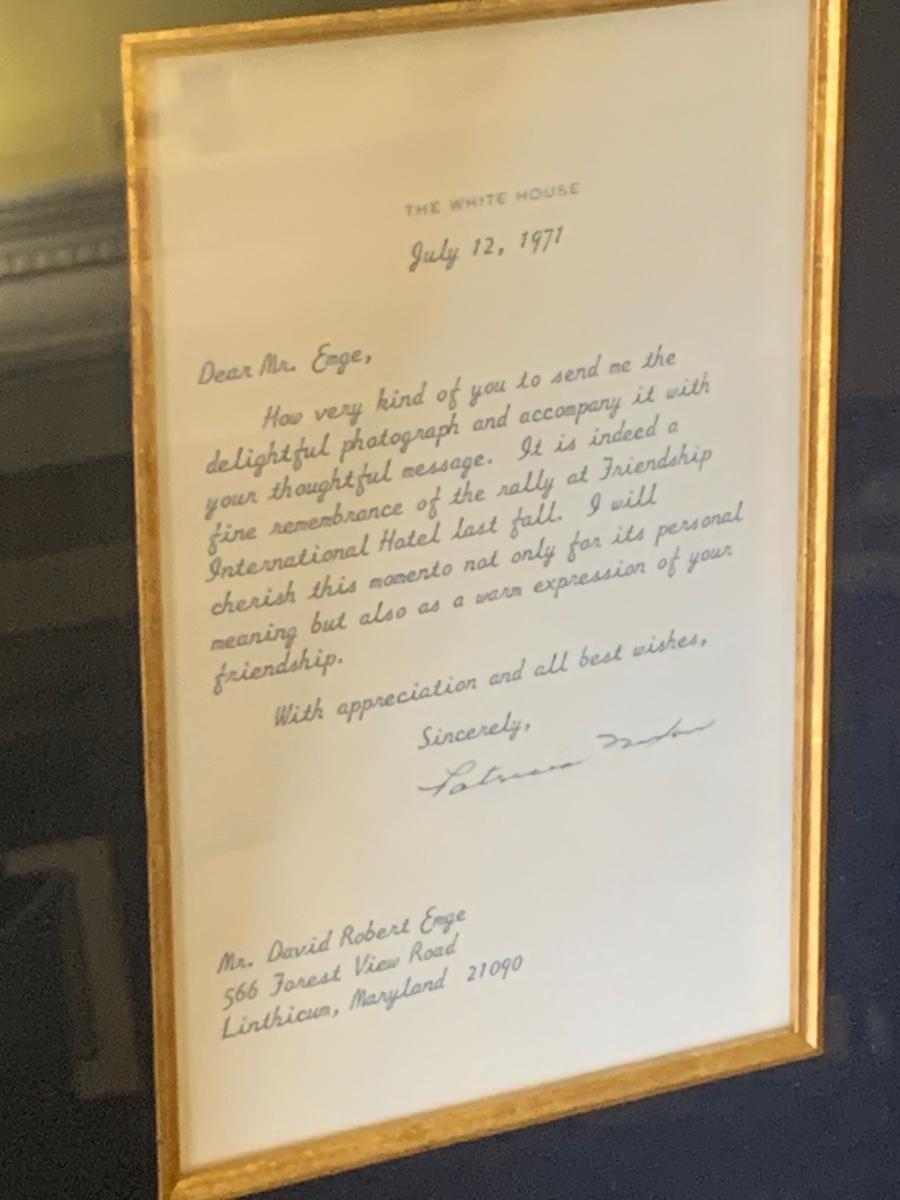 THE WHITE HOUSE
July 12, 1971
Dear Mr. Enge,
How very kind of you to send me the
delightful photograph and accompany it with
your thoughtful message. It is indeed a
fine remembrance of the rally at Friendship
International Hotel last fall. I will
cherish this momento not only for its personal
meaning but also as a warm expression of your
friendship.
With appreciation and all best wishes,
Sincerely,
Patricia Nixon
Mr. David Robert Enge
566 Forest View Road
Linthicum, Maryland 21090